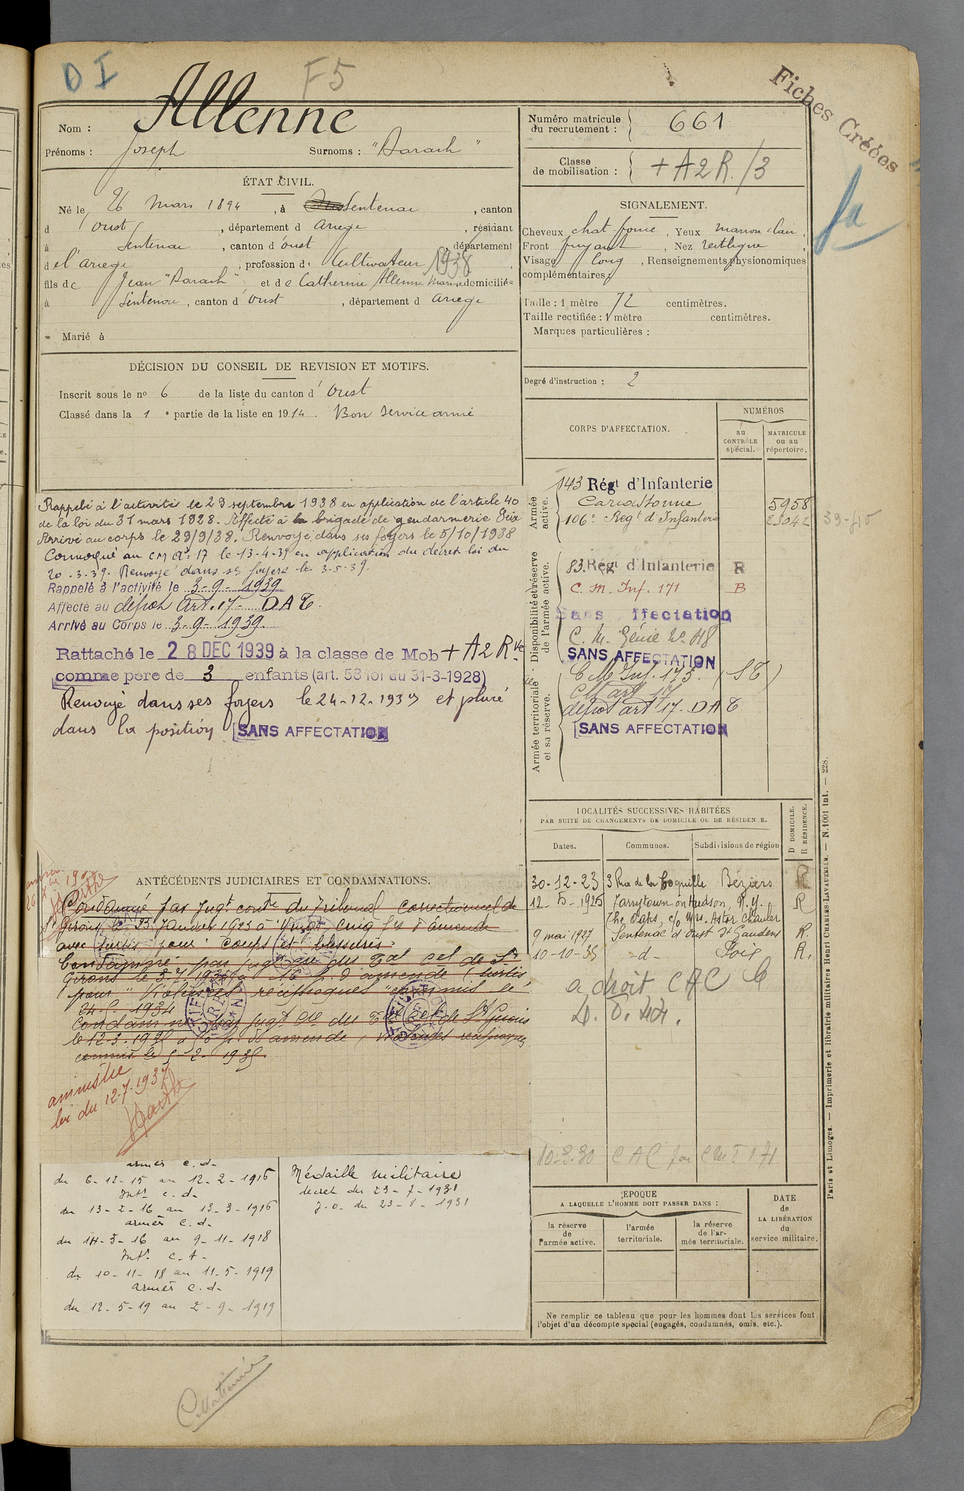 D I
F5
Fiches Créées
Nom : Allenne
Prénoms : Joseph Surnoms : "Barach"
ÉTAT CIVIL.
Né le 26 mars 1894, à Sentenac, canton
d'Oust, département d Ariège, résidant
à Sentenac, canton d'Oust, département
de l'Ariège, profession de Cultivateur 1938
fils de Jean "Barach" et de Catherine Allenne domiciliés
à Sentenac, canton d'Oust, département d Ariège
Marié à
DÉCISION DU CONSEIL DE REVISION ET MOTIFS.
Inscrit sous le no 6 de la liste du canton d'Oust
Classé dans la 1e partie de la liste en 1914. Bon Service armé
Rappelé à l'activité le 29 septembre 1938 en application de l'article 40
de la loi du 31 mars 1928. Affecté à la brigade de gendarmerie
Arrivé au corps le 29/9/38. Renvoyé dans ses foyers le 5/10/1938
Convoqué au CM Art 17 le 13-4-39 en application du décret loi du
20-3-39. Renvoyé dans ses foyers le 3-5-39.
Rappelé à l'activité le 3-9-1939
Affecté au dépôt Art. 17 DAT.
Arrivé au Corps le 3-9-1939.
Rattaché le 28 DEC 1939 à la classe de Mob + A2Rve
comme père de 3 enfants (art. 58 loi du 31-3-1928)
Renvoyé dans ses foyers le 24-12-1939 et placé
dans la position SANS AFFECTATION
ANTÉCÉDENTS JUDICIAIRES ET CONDAMNATIONS.
Condamné par Jugt contre du Tribunal correctionnel de
St Girons le 23 Janvier 1923 à Vingt cinq frs d'amende
avec sursis pour : coups et blessures.
Condamné par jugt du Tal cel de St
Girons le 1934 à 16 f d'amende (sursis)
pour "Violences réciproques" commis le
1934
Condamné par jugt du Tal cel de St Girons
le 12-3-1935 à d'amende, violences réciproques
commis le 5-2-1935.
amnistie
loi du 12-7-1937
armés c. d.
du 6-12-15 au 12-2-1916
Intr c. d.
du 13-2-16 au 13-3-1916
armées c. d.
du 14-3-16 au 9-11-1918
Intr. c. d.
du 10-11-18 au 11-5-1919
armées c. d.
du 12-5-19 au 2-9-1919
Médaille militaire
décret du 23-7-1931
J.O. du 23-8-1931
Numéro matricule du recrutement : 661
Classe de mobilisation : + A2R./3
SIGNALEMENT.
Cheveux chat foncé, Yeux marron clair,
Front fuyant, Nez rectiligne,
Visage long, Renseignements physionomiques
complémentaires
Taille : 1 mètre 72 centimètres.
Taille rectifiée : 1 mètre centimètres.
Marques particulières :
Degré d'instruction : 2
CORPS D'AFFECTATION.
NUMÉROS
au CONTRÔLE spécial.
MATRICULE ou au répertoire.
Armée active.
143 Régt d'Infanterie
Carcassonne 5958
106e Regt d'Infanterie
39-45
Disponibilité et réserve de l'armée active.
83. Régt d'Infanterie R
C. M. Inf. 171 B
Sans affectation
C. M. Génie
SANS AFFECTATION
C M Inf. 173. (S T)
Armée territoriale et sa réserve.
C M art 17
dépôt art 17. DAT
SANS AFFECTATION
LOCALITÉS SUCCESSIVES HABITÉES
PAR SUITE DE CHANGEMENTS DE DOMICILE OU DE RÉSIDENCE.
Dates. Communes. Subdivisions de région D DOMICILE. R RÉSIDENCE.
30-12-23 3 Rue de la Coquille Béziers R
12-5-1925 Tarrytown on Hudson, N.Y. R
The Oaks, c/o Mrs. Astor Chanler
9 mai 1927 Sentenac d'Oust St Gaudens R.
10-10-35 -d- Foix R.
a droit CAC
10-2-30 CAC
ÉPOQUE
A LAQUELLE L'HOMME DOIT PASSER DANS :
la réserve de l'armée active.
l'armée territoriale.
la réserve de l'armée territoriale.
DATE de LA LIBÉRATION du service militaire.
Ne remplir ce tableau que pour les hommes dont les services font
l'objet d'un décompte spécial (engagés, condamnés, omis, etc.).
Paris et Limoges. — Imprimerie et librairie militaires Henri CHARLES-LAVAUZELLE. — N. 1001 int. — 228.